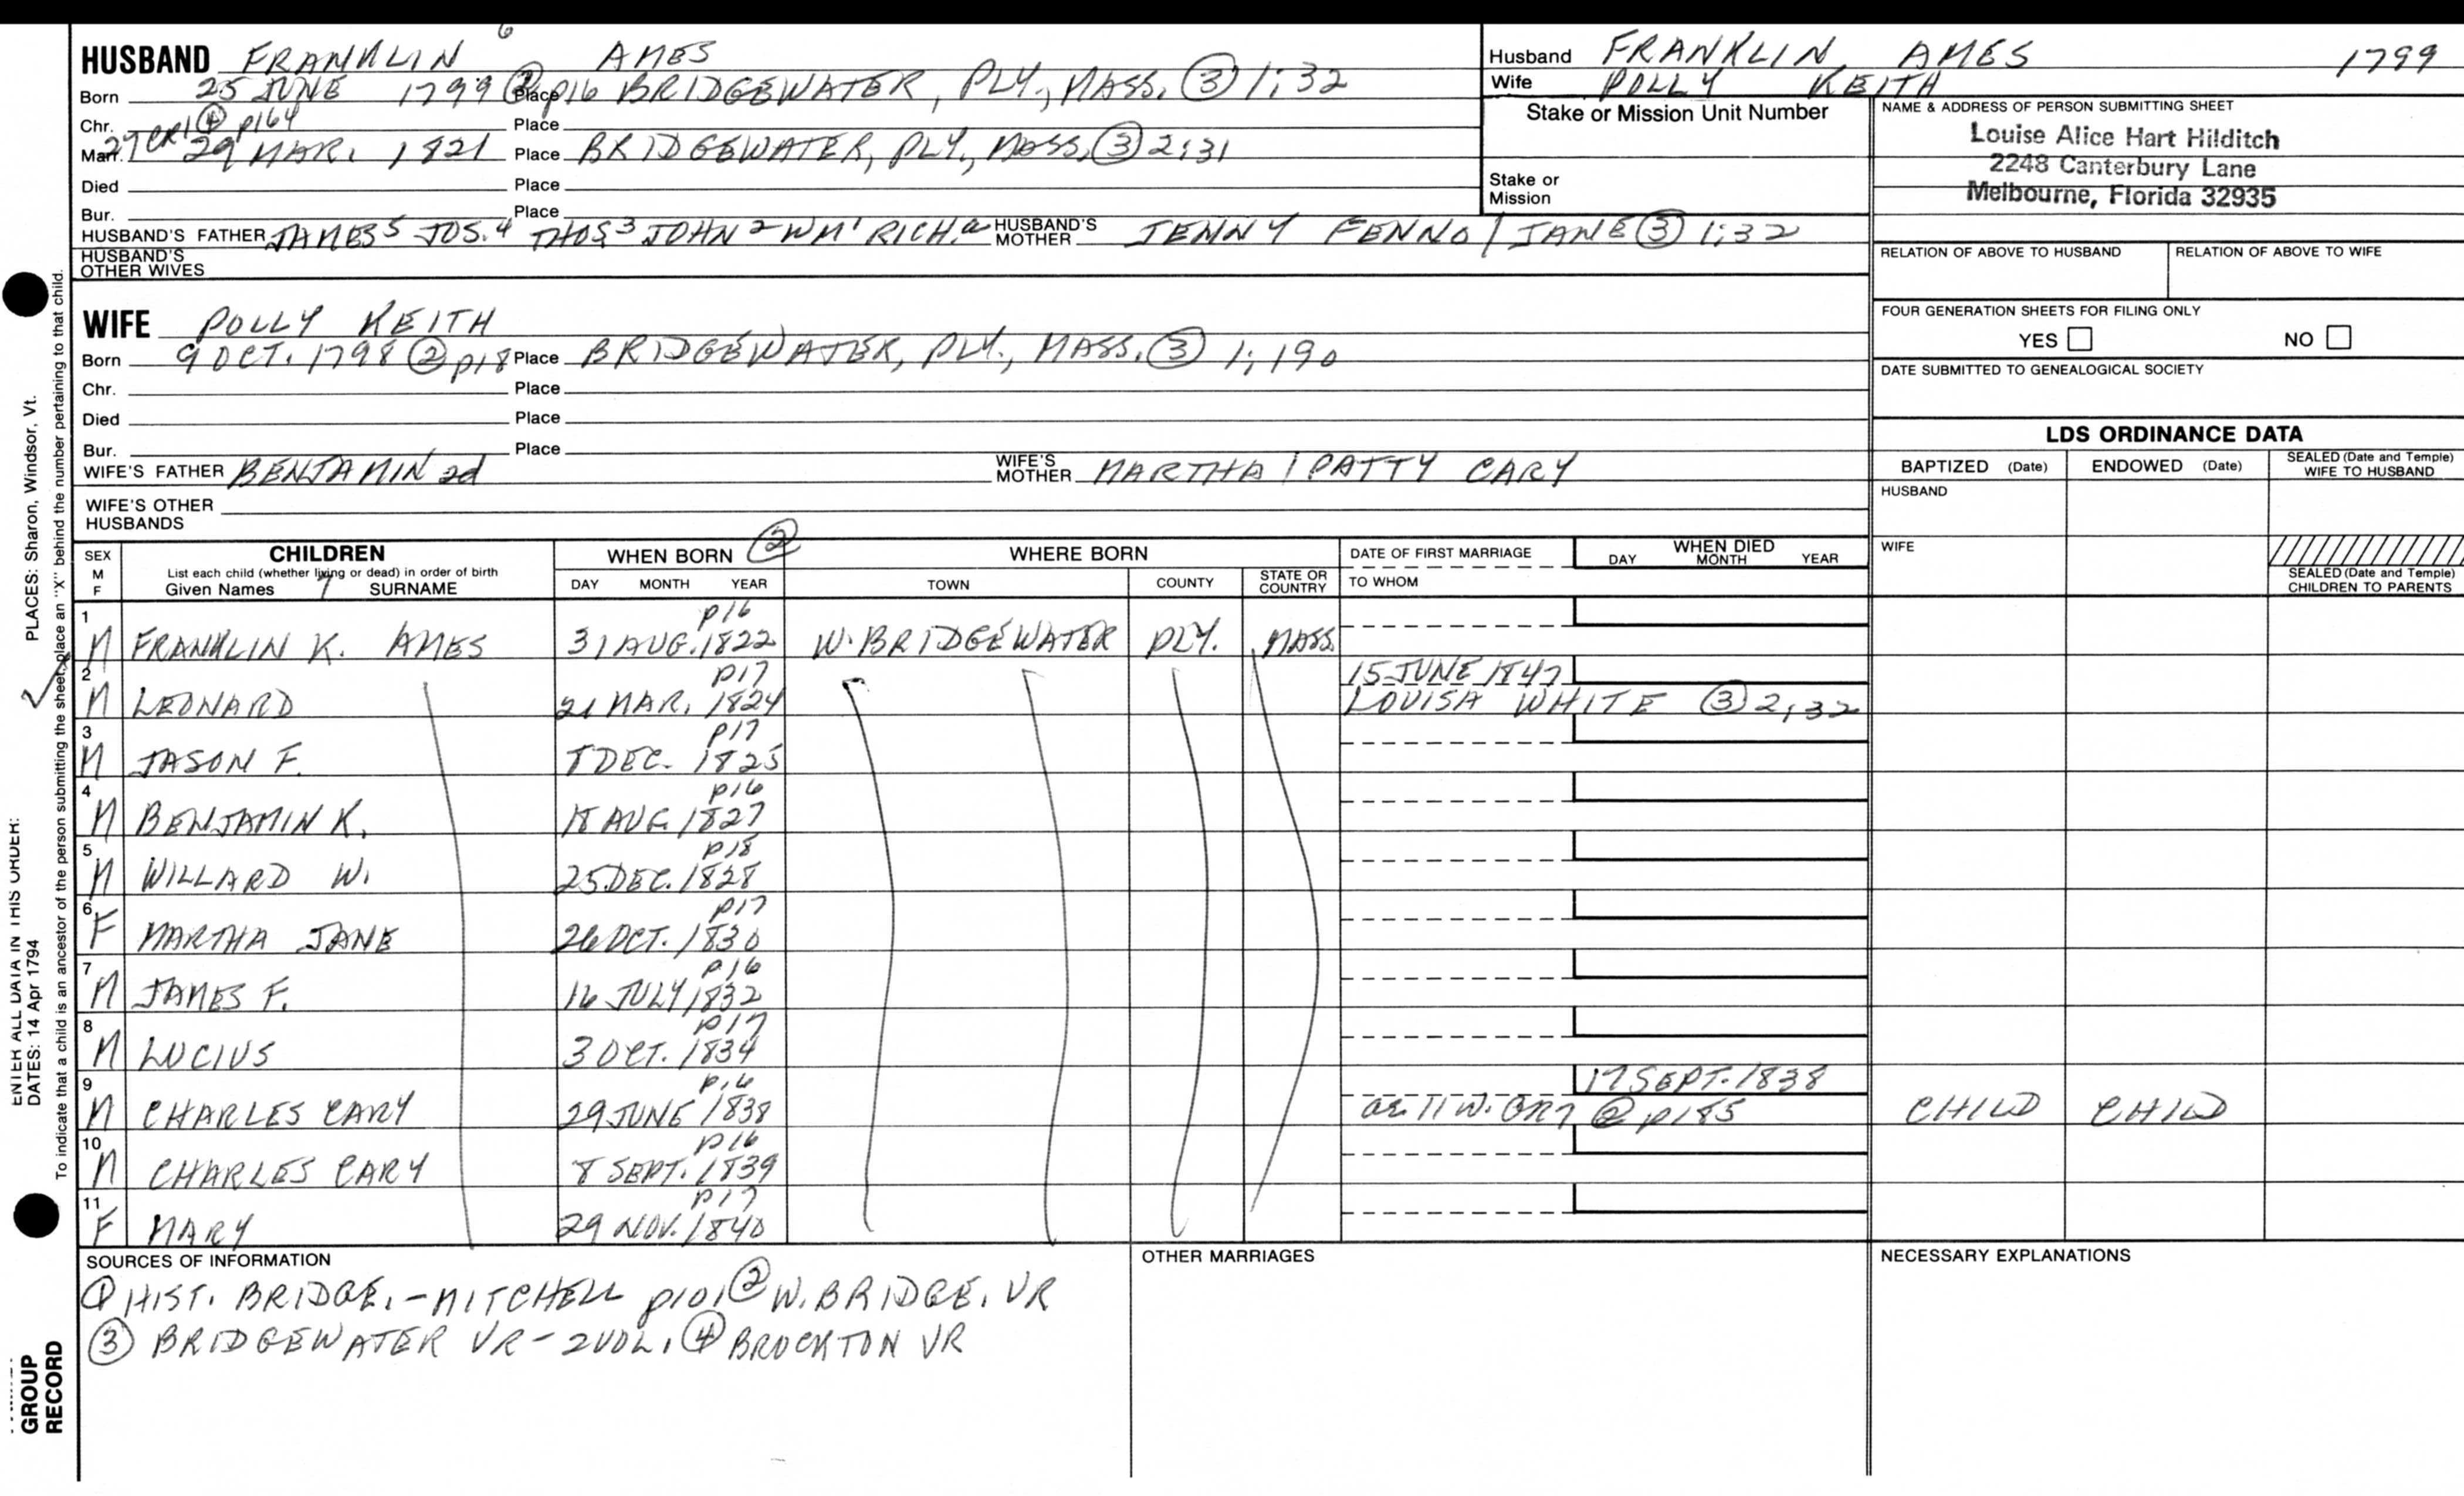 HUSBAND FRANKLIN 6 AMES
Born 25 JUNE 1799 ② p16 Place BRIDGEWATER, PLY., MASS. ③ 1;32
Chr. Place
27 CR1 ④ p164
Marr. 29 MAR. 1821 Place BRIDGEWATER, PLY., MASS. ③ 2;31
Died Place
Bur. Place
HUSBAND'S FATHER JAMES 5 JOS. 4 THOS 3 JOHN 2 WM 1 RICH. a HUSBAND'S MOTHER JENNY FENNO / JANE ③ 1;32
HUSBAND'S OTHER WIVES
Husband FRANKLIN AMES 1799
Wife POLLY KEITH
Stake or Mission Unit Number
Stake or Mission
NAME & ADDRESS OF PERSON SUBMITTING SHEET
Louise Alice Hart Hilditch
2248 Canterbury Lane
Melbourne, Florida 32935
RELATION OF ABOVE TO HUSBAND RELATION OF ABOVE TO WIFE
FOUR GENERATION SHEETS FOR FILING ONLY
YES NO
DATE SUBMITTED TO GENEALOGICAL SOCIETY
WIFE POLLY KEITH
Born 9 OCT. 1798 ② p18 Place BRIDGEWATER, PLY., MASS. ③ 1;190
Chr. Place
Died Place
Bur. Place
WIFE'S FATHER BENJAMIN 2d WIFE'S MOTHER MARTHA / PATTY CARY
WIFE'S OTHER HUSBANDS
LDS ORDINANCE DATA
BAPTIZED (Date) ENDOWED (Date) SEALED (Date and Temple) WIFE TO HUSBAND
HUSBAND
WIFE
SEALED (Date and Temple) CHILDREN TO PARENTS
SEX M F CHILDREN WHEN BORN ② WHERE BORN DATE OF FIRST MARRIAGE WHEN DIED
List each child (whether living or dead) in order of birth
Given Names 7 SURNAME DAY MONTH YEAR TOWN COUNTY STATE OR COUNTRY TO WHOM DAY MONTH YEAR
p16
1 M FRANKLIN K. AMES 31 AUG. 1822 W. BRIDGEWATER PLY. MASS.
p17 15 JUNE 1847
2 M LEONARD 21 MAR. 1824 LOUISA WHITE ③ 2;32
p17
3 M JASON F. 8 DEC. 1825
p16
4 M BENJAMIN K. 18 AUG 1827
p18
5 M WILLARD W. 25 DEC. 1828
p17
6 F MARTHA JANE 26 OCT. 1830
p16
7 M JAMES F. 16 JULY 1832
p17
8 M LUCIUS 3 OCT. 1834
p16 17 SEPT. 1838
9 M CHARLES CARY 29 JUNE 1838 ② p185 CHILD CHILD
p16
10 M CHARLES CARY 8 SEPT. 1839
p17
11 F MARY 29 NOV. 1840
SOURCES OF INFORMATION
① HIST. BRIDGE. - MITCHELL p101 ② W. BRIDGE. VR
③ BRIDGEWATER VR - 2 VOL. ④ BROCKTON VR
OTHER MARRIAGES
NECESSARY EXPLANATIONS
PLACES: Sharon, Windsor, Vt.
To indicate that a child is an ancestor of the person submitting the sheet, place an "X" behind the number pertaining to that child.
ENTER ALL DATA IN THIS ORDER:
DATES: 14 Apr 1794
GROUP
RECORD